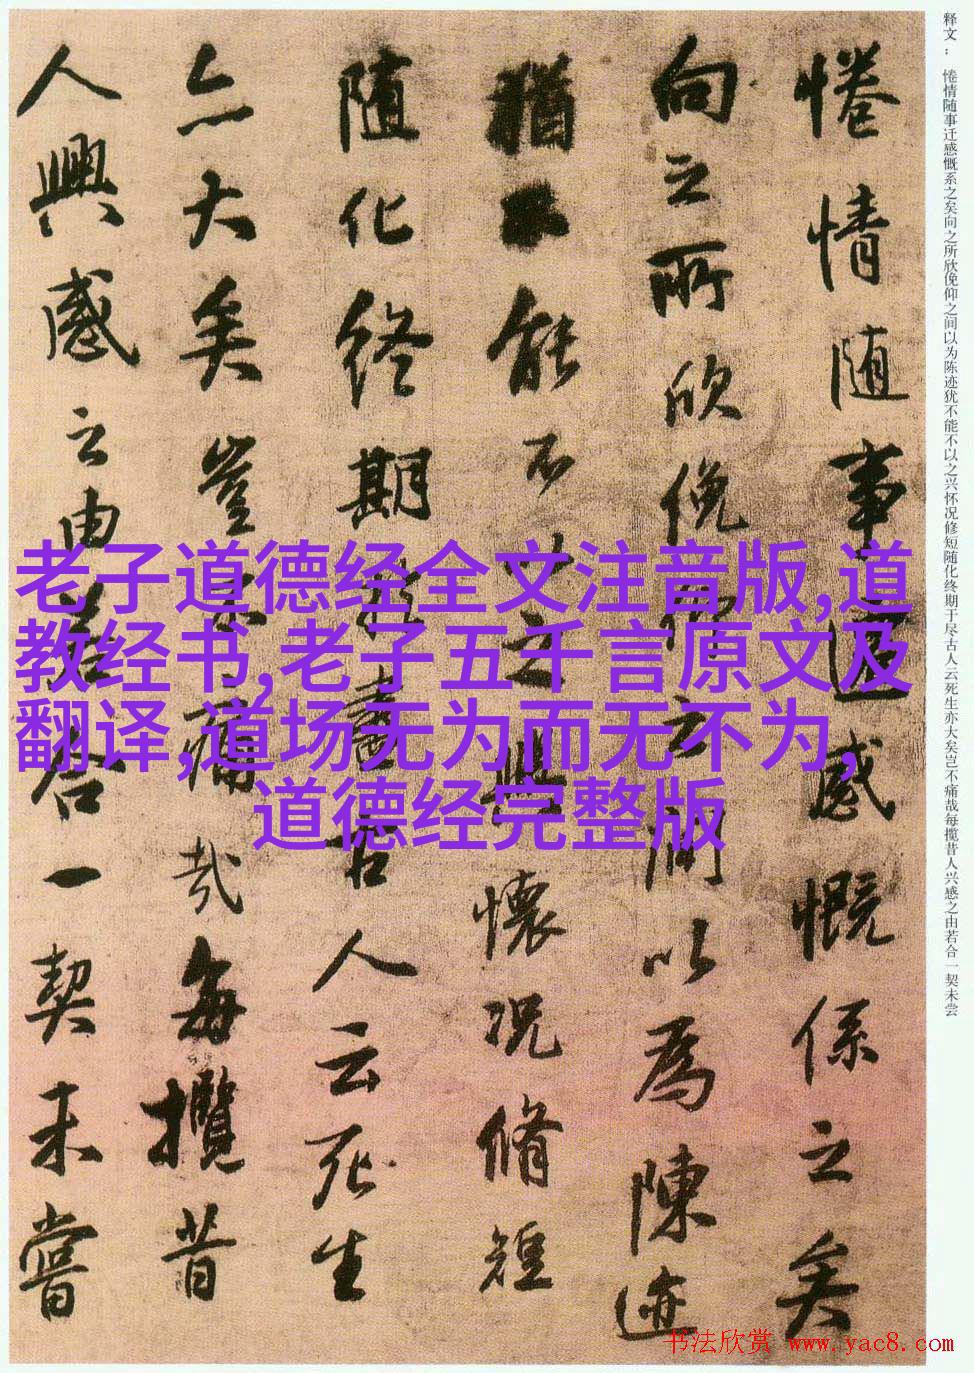 释文： 惓情随事迁感慨系之矣向之所欣俛仰之间以为陈迹犹不能不以之兴怀况修短随化终期于尽古人云死生亦大矣岂不痛哉每揽昔人兴感之由若合一契未尝
惓情随事遷感慨係之矣
向之所欣俛仰之間以為陳迹
猶不能不以之興懷况脩短
随化終期於盡古人云死生
亦大矣豈不痛哉每攬昔
人興感之由若合一契未嘗
老子道德经全文注音版,道
教经书,老子五千言原文及
翻译,道场无为而无不为,
道德经完整版
书法欣赏 www.yac8.com